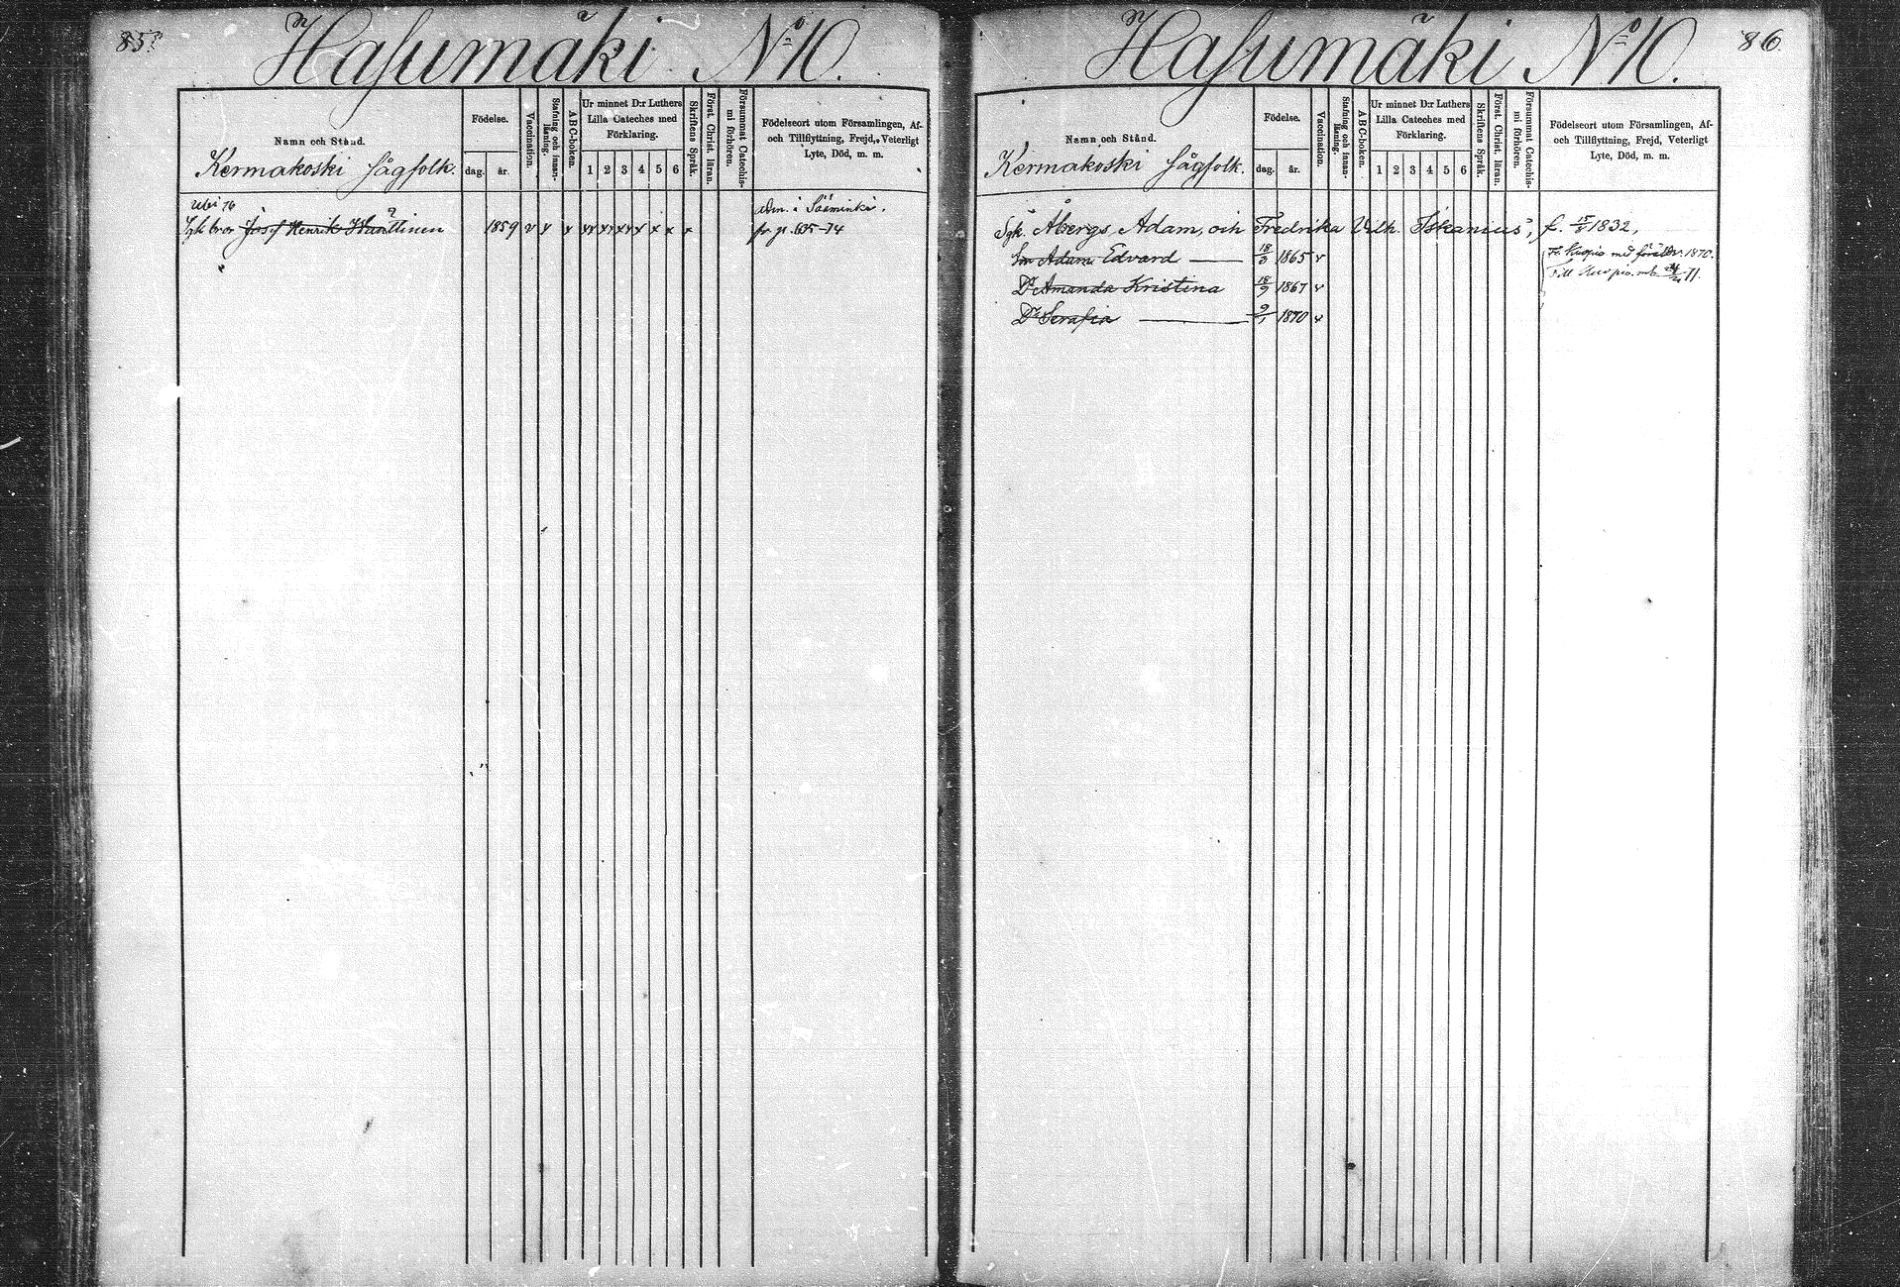 85
Hasumäki No 10.
Namn och Stånd.
Kermakoski Sågfolk.
Födelse.
dag. år.
Vaccination.
Stafning och innan-läsning.
ABC-boken.
Ur minnet D:r Luthers
Lilla Cateches med
Förklaring.
1 2 3 4 5 6
Skriftens Språk.
Först. Christ. läran.
Försummat Catechis-
mi förhören.
Födelseort utom Församlingen, Af-
och Tillflyttning, Frejd, Veterligt
Lyte, Död, m. m.
Josef Henrik 1859 v
i Sääminki.
86
Hasumäki No 10.
Namn och Stånd.
Kermakoski Sågfolk.
Födelse.
dag. år.
Vaccination.
Stafning och innan-läsning.
ABC-boken.
Ur minnet D:r Luthers
Lilla Cateches med
Förklaring.
1 2 3 4 5 6
Skriftens Språk.
Först. Christ. läran.
Försummat Catechis-
mi förhören.
Födelseort utom Församlingen, Af-
och Tillflyttning, Frejd, Veterligt
Lyte, Död, m. m.
Sgk. Åbergs, Adam, och Fredrika Vilh. Iskanius', f. 1832,
Sn Adam Edvard 1865 v Fr. Kuopio med föräldr. 1870.
Dr Amanda Kristina 18/9 1867 v Till Kuopio 71.
Dr Serafia 9/1 1870 v